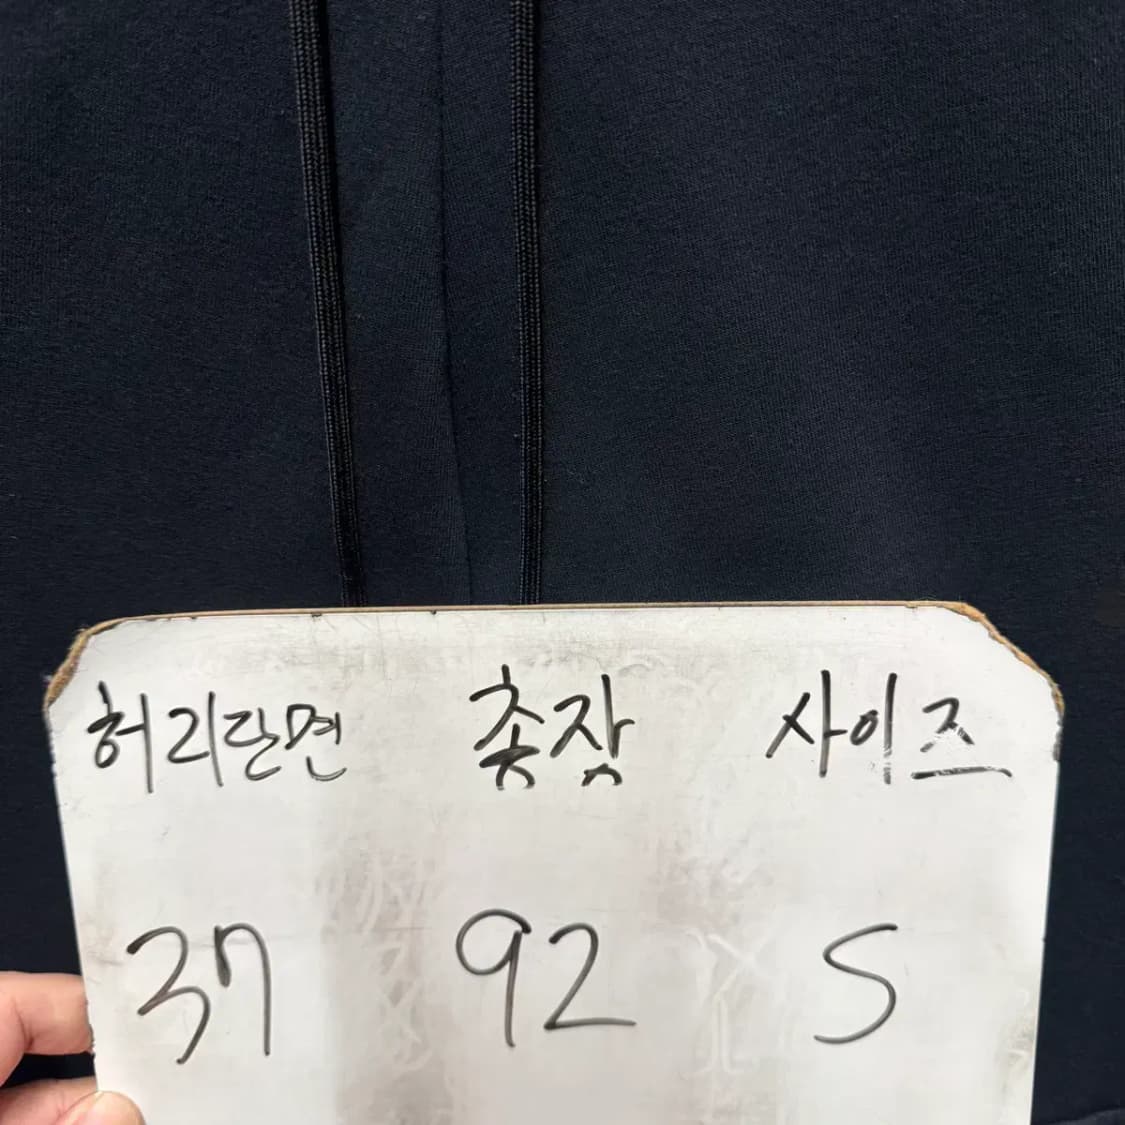 허리단면 총장 사이즈
37 92 S